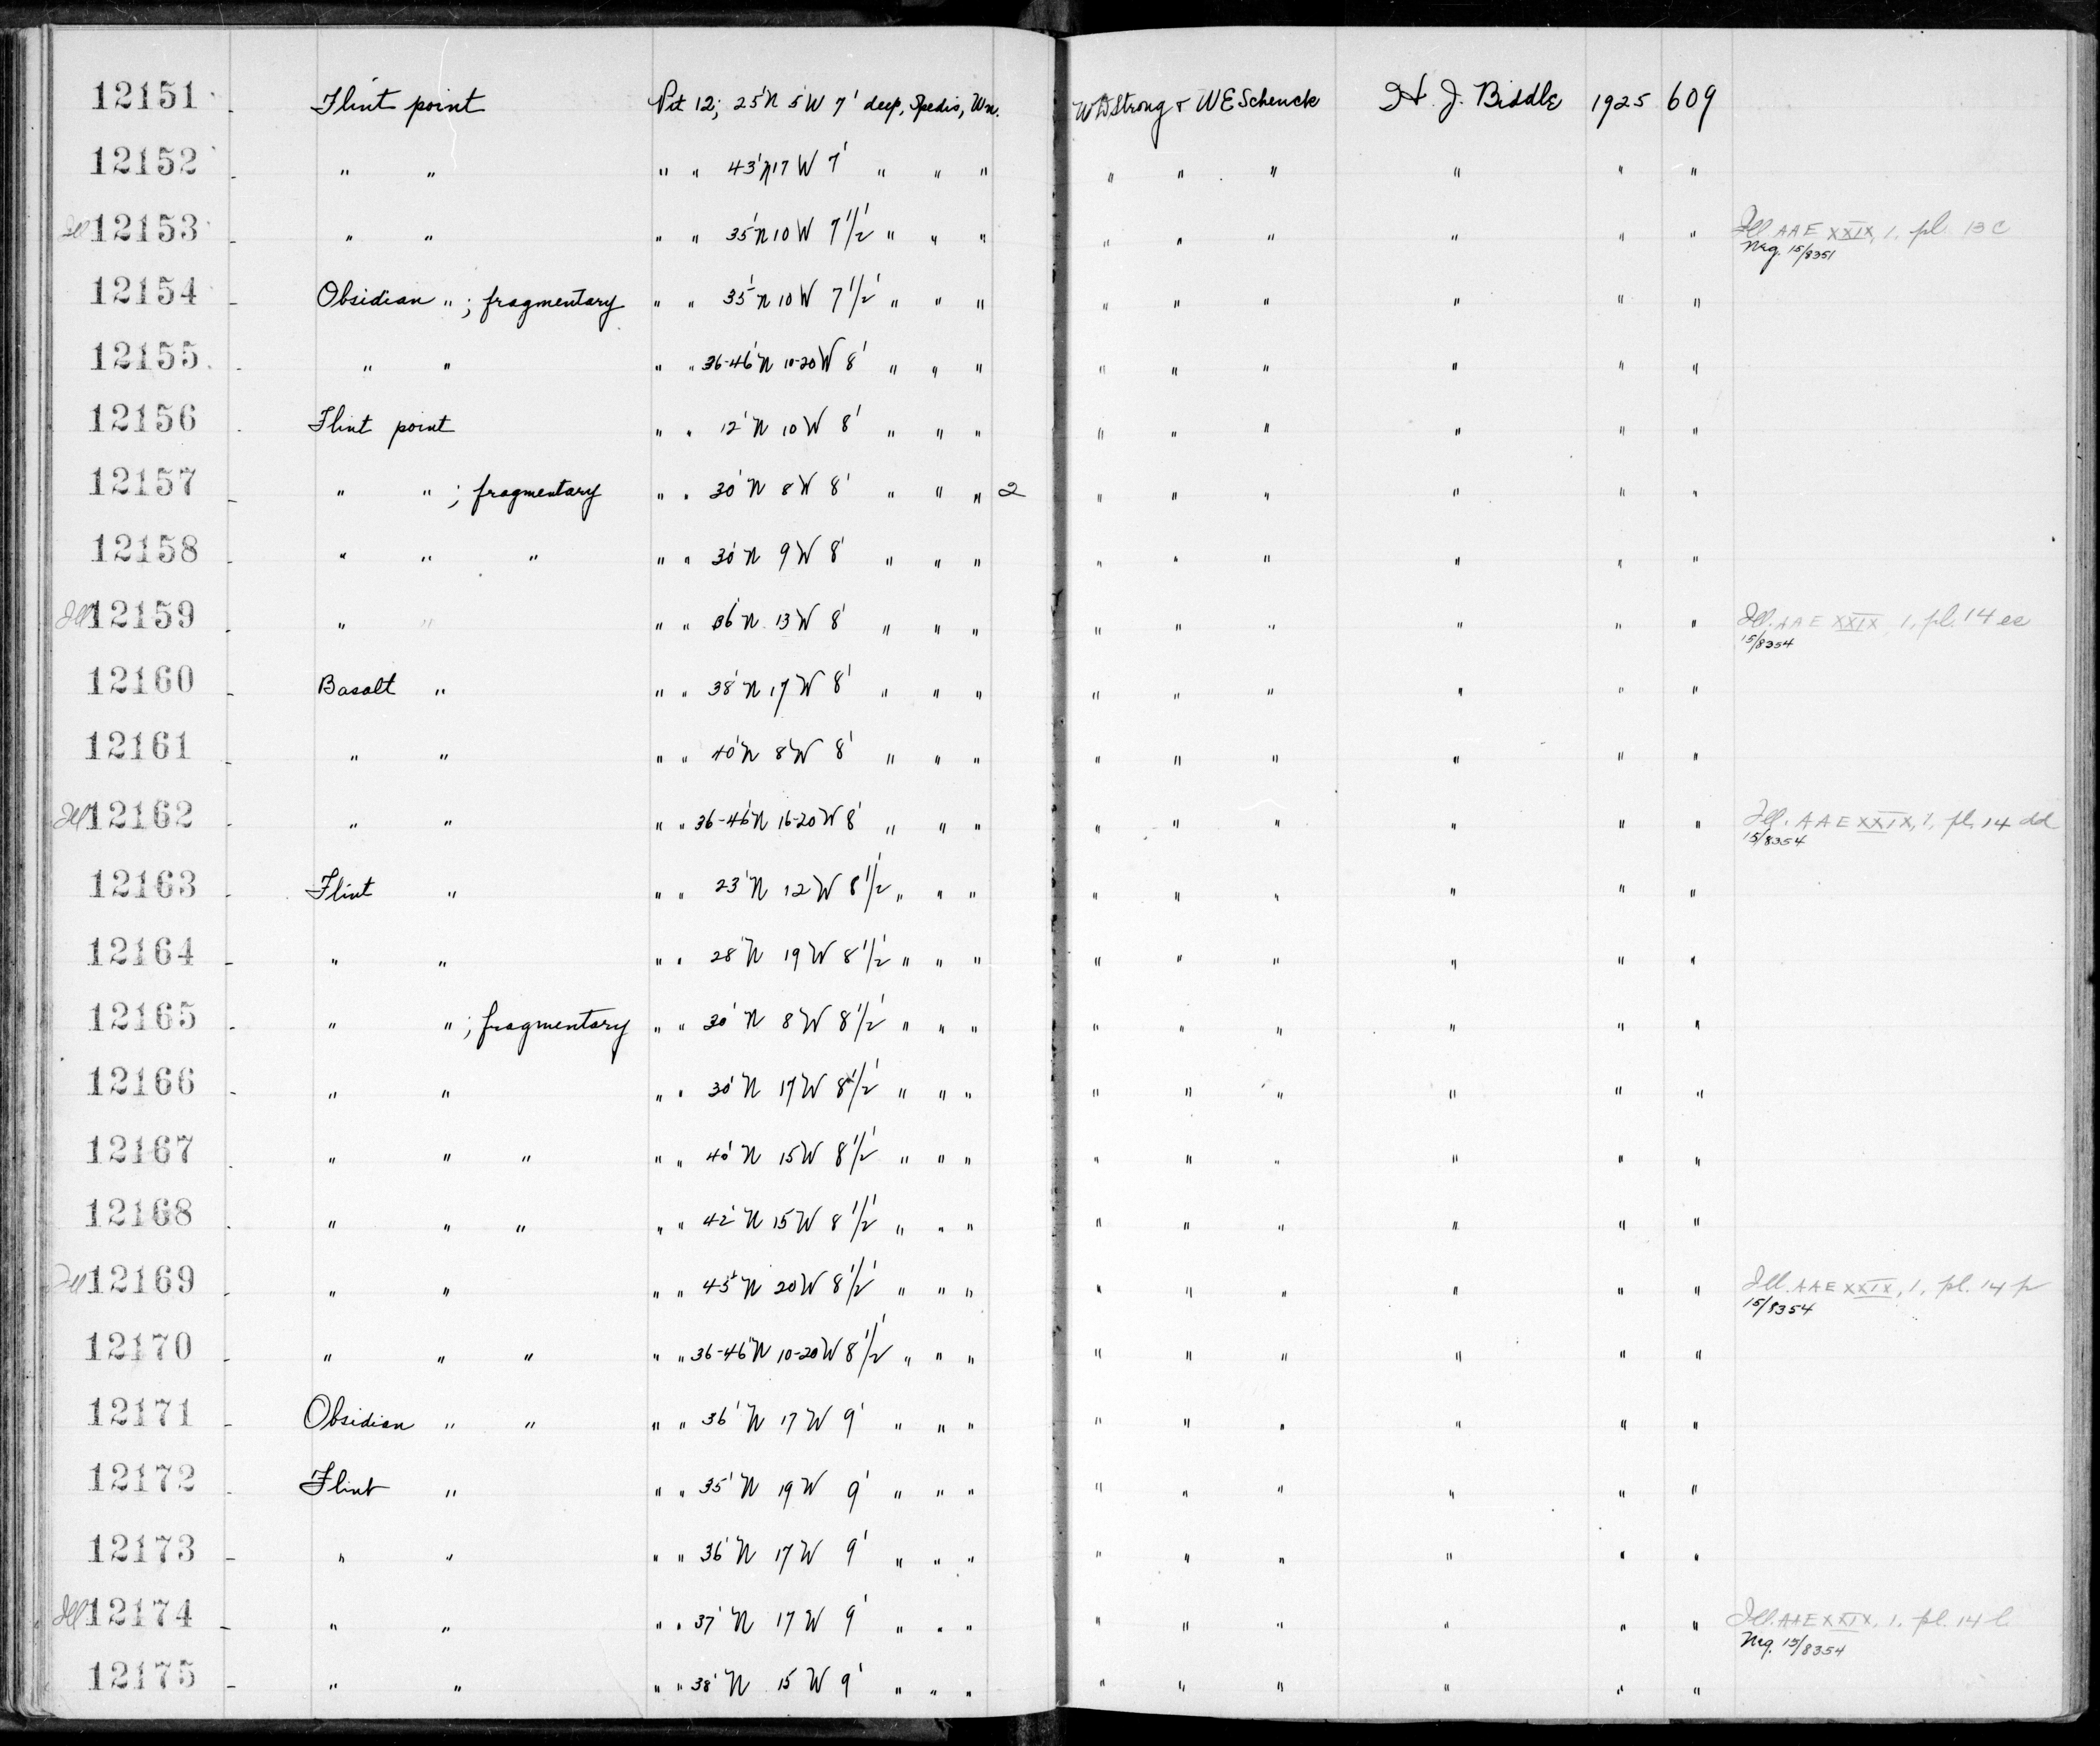 12151 Flint point Pit 12; 25'N 5'W 7' deep, Spedis, Wn. WDStrong & WESchenck H. J. Biddle 1925 609
12152 " " " " 43'N17W 7' " " " " " " " " "
Ill 12153 " " " " 35'N10W 7 1/2' " " " " " " " " " Ill AAE XXIX, 1, pl. 13 c
Neg. 15/8351
12154 Obsidian " ; fragmentary " " 35'N10W 7 1/2' " " " " " " " " "
12155 " " " " 36-46'N 10-20W 8' " " " " " " " " "
12156 Flint point " " 12'N 10W 8' " " " " " " " " "
12157 " " ; fragmentary " " 30'N 8W 8' " " " 2 " " " " " "
12158 " " " " " 30'N 9W 8' " " " " " " " " "
Ill 12159 " " " " 36'N 13W 8' " " " " " " " " " Ill. AAE XXIX, 1, pl. 14 ee
15/8354
12160 Basalt " " " 38'N 17W 8' " " " " " " " " "
12161 " " " " 40'N 8W 8' " " " " " " " " "
Ill 12162 " " " " 36-46'N 16-20W 8' " " " " " " " " " Ill. AAE XXIX, 1, pl. 14 dd
15/8354
12163 Flint " " " 23'N 12W 8 1/2' " " " " " " " " "
12164 " " " " 28'N 19W 8 1/2' " " " " " " " " "
12165 " " ; fragmentary " " 30'N 8W 8 1/2' " " " " " " " " "
12166 " " " " 30'N 17W 8 1/2' " " " " " " " " "
12167 " " " " " 40'N 15W 8 1/2' " " " " " " " " "
12168 " " " " " 42'N 15W 8 1/2' " " " " " " " " "
Ill 12169 " " " " 45'N 20W 8 1/2' " " " " " " " " " Ill. AAE XXIX, 1, pl. 14 p
15/8354
12170 " " " " " 36-46'N 10-20W 8 1/2' " " " " " " " " "
12171 Obsidian " " " " 36'N 17W 9' " " " " " " " " "
12172 Flint " " " 35'N 19W 9' " " " " " " " " "
12173 " " " " 36'N 17W 9' " " " " " " " " "
Ill 12174 " " " " 37'N 17W 9' " " " " " " " " " Ill. AAE XXIX, 1, pl. 14 l
Neg. 15/8354
12175 " " " " 38'N 15W 9' " " " " " " " " "